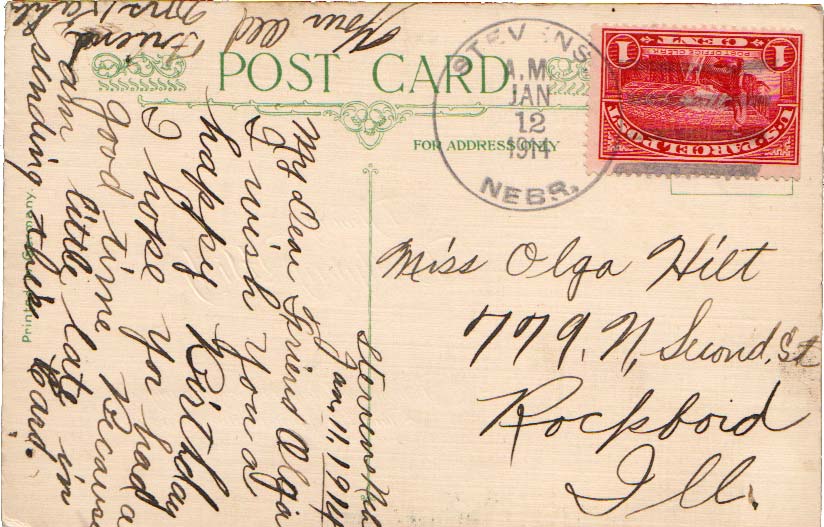 POST CARD
FOR ADDRESS ONLY
STEVENS
A.M.
JAN
12
1914
NEBR.
U.S. PARCEL POST
POST OFFICE CLERK
1 CENT 1
Miss Olga Hilt
779, N, Second, St
Rockford
Ill.
Stevens Neb
Jan. 11, 1914
My Dear Friend Olga
I wish you a
happy Birthday
I hope you had a
good time. Because
I am little late in
sending this Card.
Your Old
Friend
Mrs.
Printed Germany